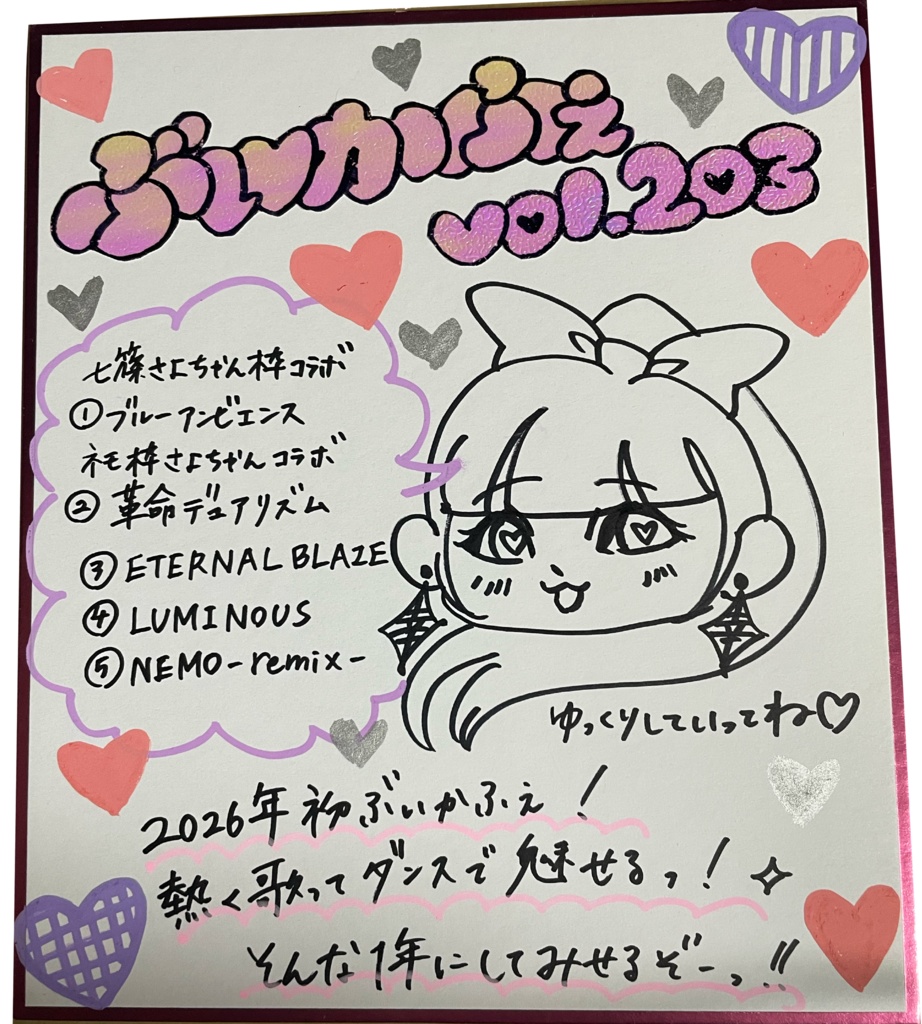 ぶいかふぇ
vol.203
七篠さよちゃん枠コラボ
①ブルーアンビエンス
ネモ枠さよちゃんコラボ
②革命デュアリズム
③ETERNAL BLAZE
④LUMINOUS
⑤NEMO-remix-
ゆっくりしていってね♡
2026年初ぶいかふぇ!
熱く歌ってダンスで魅せるっ!
そんな1年にしてみせるぞーっ!!